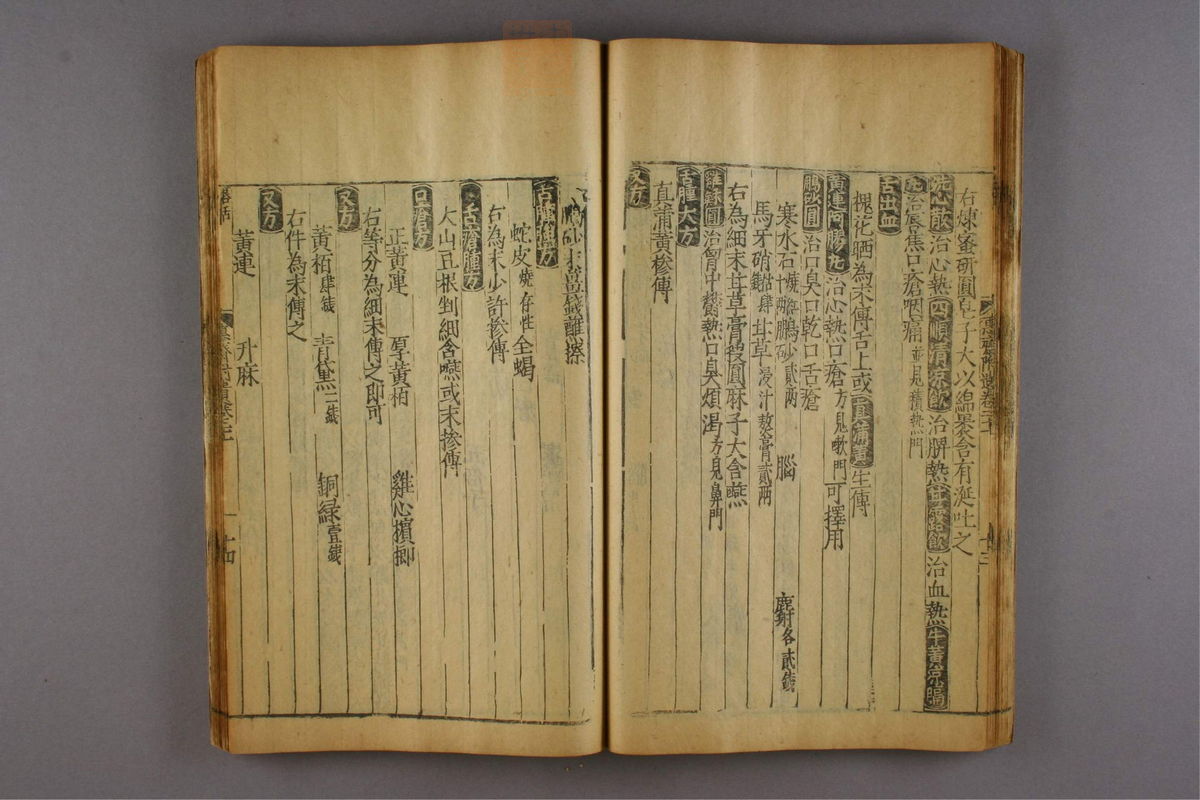 右煉蜜研圓皂子大以綿裹含有涎吐之
洗心散治心熱四順清涼飲治脾熱甘露飲治血熱牛黃涼膈
治唇焦口瘡咽痛並見積熱門
舌出血
槐花晒為末傅舌上或真蒲黃生傅
黃連阿膠丸治心熱口瘡方見嗽門可擇用
鵬砂圓治口臭口乾口舌瘡
寒水石燒 十兩 鵬砂貳兩 腦 麝各貳錢
馬牙硝 肆 甘草浸汁熬膏貳兩
右為細末甘草膏搜圓麻子大含嚥
雞蘇圓治胷中鬱熱口臭煩渴方見鼻門
舌腫大方
真蒲黃摻傅
又方
舌腫方
蛇皮燒存性 全蝎
右為末少許摻傅
舌瘡腫方
大山豆根剉細含嚥或末摻傅
口瘡方
正黃連 厚黃栢 雞心檳榔
右等分為細末傅之即可
又方
黃栢肆錢 青黛二錢 銅綠壹錢
右件為末傅之
又方
黃連 升麻
十四